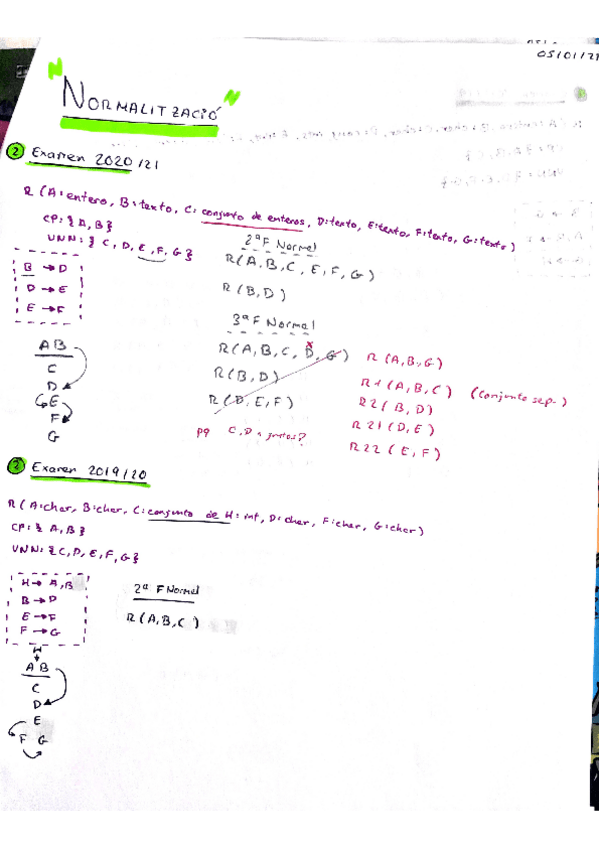 05/01/21
"NORMALITZACIÓ"
2 Examen 2020/21
R (A: entero, B: texto, C: conjunto de enteros, D: texto, E: texto, F: texto, G: texto)
CP: {A, B}
VNN: { C, D, E, F, G }
B → D
D → E
E → F
A B
C
D
E
F
G
2ª F Normal
R (A, B, C, E, F, G)
R (B, D)
3ª F Normal
R (A, B, C, D, G)
x
R (B, D)
R (D, E, F)
pq C, D juntos?
R (A, B, G)
R1 (A, B, C) (Conjunto sep.)
R2 (B, D)
R21 (D, E)
R22 (E, F)
2 Examen 2019/20
R (A: char, B: char, C: conjunto de H: int, D: char, F: char, G: char)
CP: { A, B }
VNN: { C, D, E, F, G }
H → A, B
B → D
E → F
F → G
H
A B
C
D
E
F G
2ª F Normal
R (A, B, C )